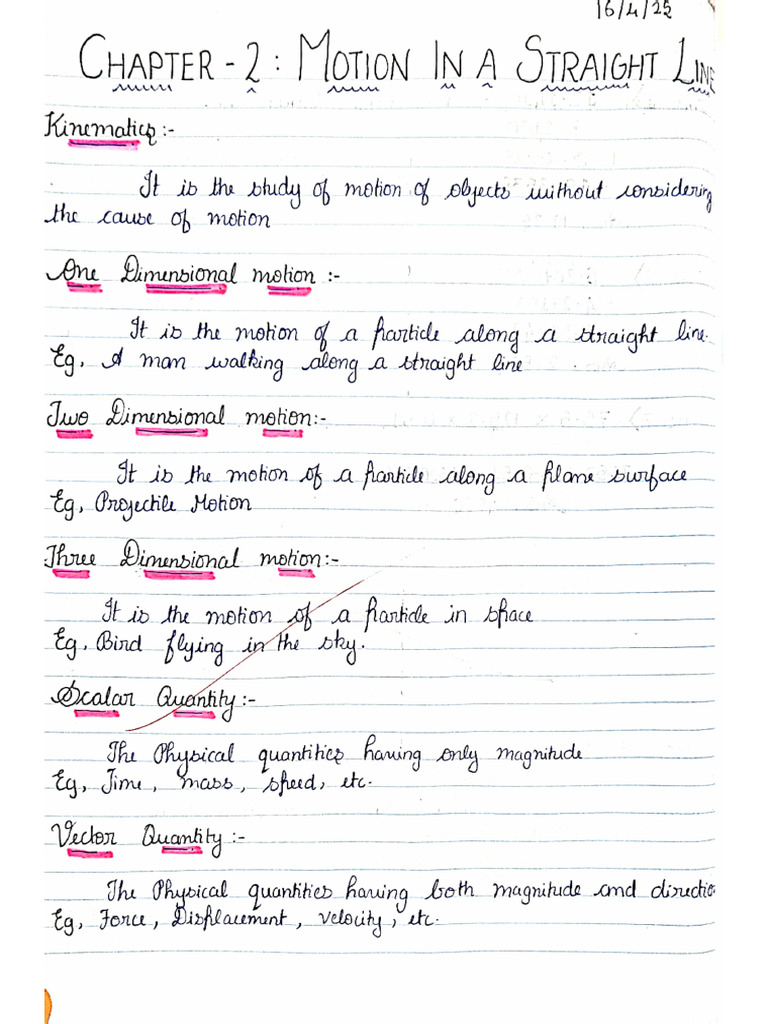 16/4/25
CHAPTER - 2 : MOTION IN A STRAIGHT LINE
Kinematics :-
It is the study of motion of objects without considering
the cause of motion
One Dimensional motion :-
It is the motion of a particle along a straight line.
Eg, A man walking along a straight line
Two Dimensional motion:-
It is the motion of a particle along a plane surface
Eg, Projectile Motion
Three Dimensional motion:-
It is the motion of a particle in space
Eg, Bird flying in the sky.
Scalar Quantity:-
The Physical quantities having only magnitude
Eg, Time, mass, speed, etc.
Vector Quantity:-
The Physical quantities having both magnitude and directio
Eg, Force, Displacement, velocity, etc.